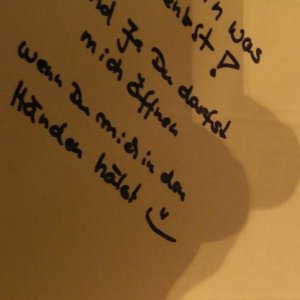 in was
nd Ja Du darfst
mich öffnen
wenn Du mich in den
Händen hälst